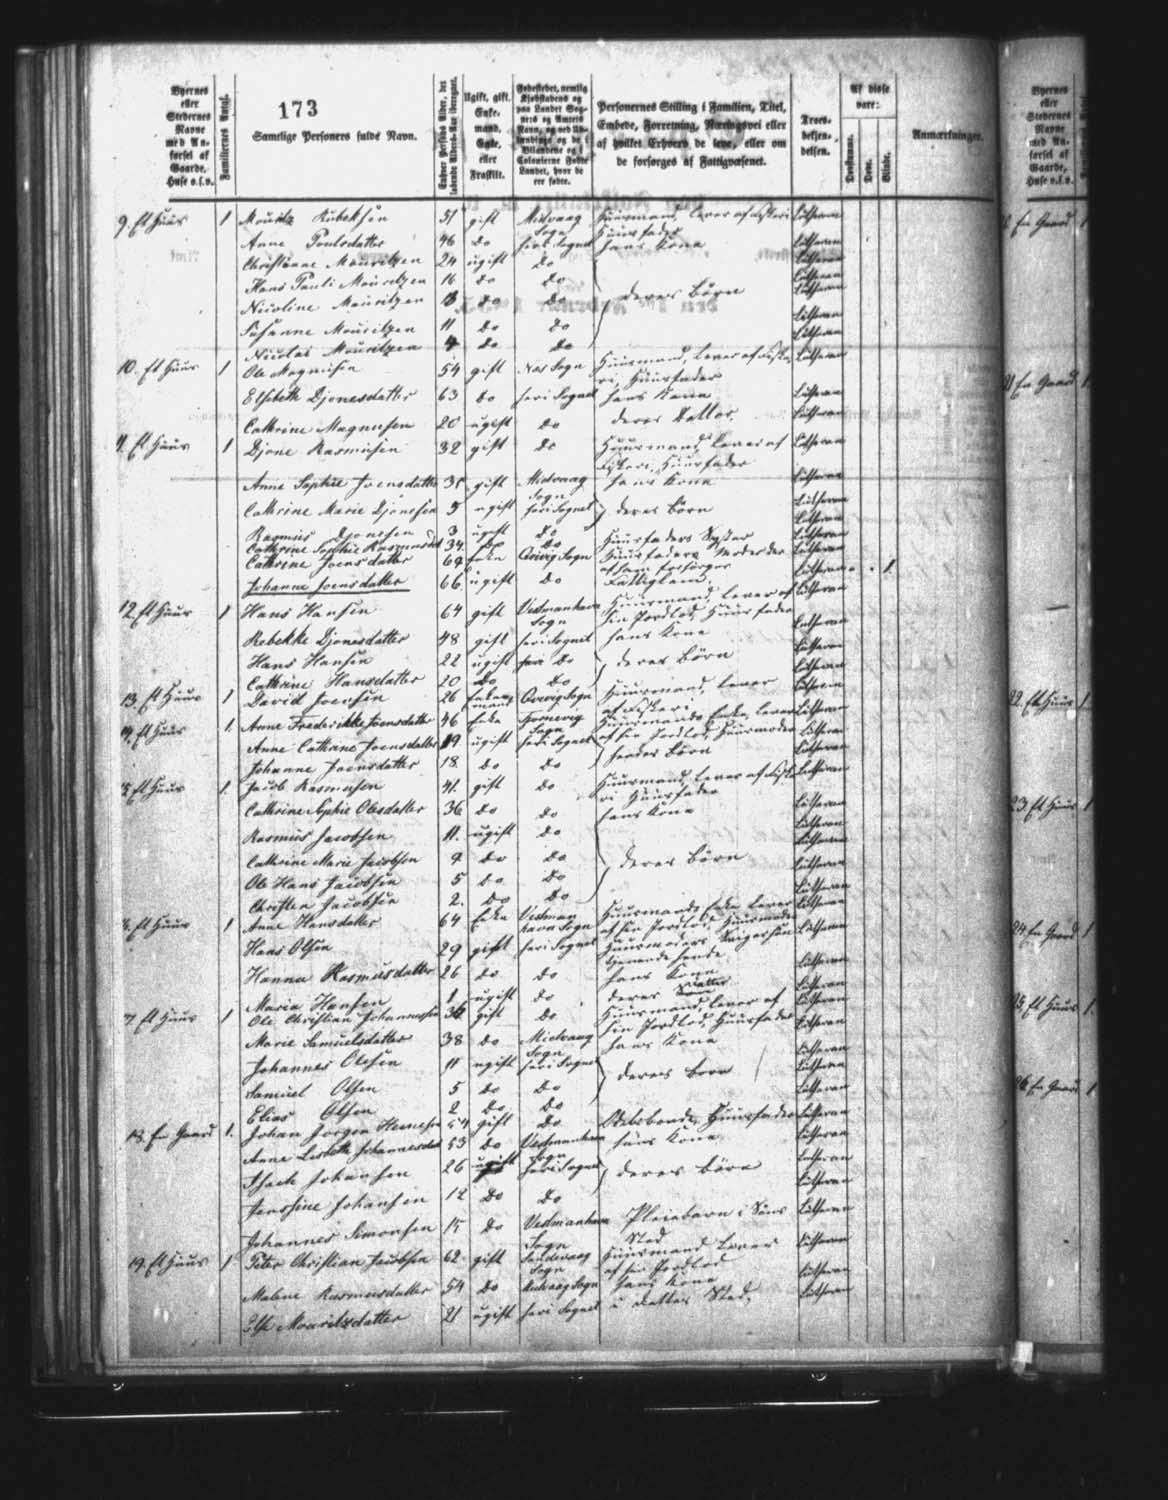 173
Byernes eller Stedernes Navne med Anførsel af Gaarde, Huse o.s.v.
Familiernes Antal.
Samtlige Personers fulde Navn.
Enhver Persons Alder, det løbende Alders-Aar iberegnet.
Ugift, gift, Enkemand, Enke, eller Fraskilt.
Fødestedet, nemlig Kjøbstadens og paa Landet Sognets og Amtets Navn,
Personernes Stilling i Familien, Titel, Embede, Forretning, Næringsvei eller af hvilket Erhverv de leve, eller om de forsørges af Fattigvæsenet.
Troesbekjendelsen.
Af disse vare:
Døvstumme.
Døve.
Blinde.
Anmærkninger.
9. Et Huus 1 Mouritz 51 gift Midvaag Sogn Huusmand, lever af Fiskeri Huusfader Lutheran
Anne Poulsdatter 46 do heri Sognet hans Kone Lutheran
Christiane Mouritzen 24 ugift do Lutheran
Hans Pauli Mouritzen 16 do do deres Börn Lutheran
Nicoline Mouritzen do do Lutheran
Susanne Mouritzen 11 do do Lutheran
Nicolai Mouritzen 4 do do Lutheran
10. Et Huus 1 Ole Magnusen 54 gift Næs Sogn Huusmand, lever af Fiskeri, Huusfader Lutheran
Elsebeth Djonesdatter 63 do heri Sognet hans Kone Lutheran
Cathrine Magnusen 20 ugift do deres Datter Lutheran
11. Et Huus 1 Djone Rasmusen 32 gift do Huusmand, lever af Fiskeri, Huusfader Lutheran
Anne Sophie Joensdatter 35 gift Midvaag Sogn hans Kone Lutheran
Cathrine Marie Djonesen 5 ugift heri Sognet deres Börn Lutheran
Rasmus Djonesen 3 ugift do Lutheran
Cathrine Sophie Rasmusdat 34 do do Huusfaders Syster Lutheran
Cathrine Joensdatter 69 Enke Qvivig Sogn Huusfaders Moder Lutheran
Johanne Joensdatter 66 ugift do Fattiglem Lutheran 1
12. Et Huus 1 Hans Hansen 64 gift Vestmanhavn Sogn Huusmand, lever af sin Jordlod, Huusfader Lutheran
Rebekke Djonesdatter 48 gift heri Sognet hans Kone Lutheran
Hans Hansen 22 ugift do deres Börn Lutheran
Cathrine Hansdatter 20 do do Lutheran
13. Et Huus 1 David Joensen 26 Enkemand Qvivig Sogn Huusmand, lever af Fiskeri Lutheran
14. Et Huus 1. Anne Frederikke Joensdatter 46 Enke Sogn Huusmands Enke, lever af sin Jordlod, Huusmoder Lutheran
Anne Cathrine Joensdatter 19 ugift heri Sognet hendes Börn Lutheran
Johanne Joensdatter 18 do do Lutheran
15. Et Huus 1. Jacob Rasmusen 41. gift do Huusmand, lever af Fiskeri, Huusfader Lutheran
Cathrine Sophie Olesdatter 36 do do hans Kone Lutheran
Rasmus Jacobsen 11. ugift do Lutheran
Cathrine Marie Jacobsen do do deres Börn Lutheran
Ole Hans Jacobsen 5 do do Lutheran
Christen Jacobsen 2. do do Lutheran
16. Et Huus 1 Anne Hansdatter 64 Enke Vestmanhavn Sogn Huusmands Enke, lever af sin Jordlod, Huusmoder Lutheran
Hans Olsen 29 gift heri Sognet Huusmoders Svigersön Lutheran
Hanna Rasmusdatter 26 do do hans Kone Lutheran
Maria Hansen 1 ugift do deres Datter Lutheran
17. Et Huus 1 Ole Christian Johannesen 36 gift do Huusmand, lever af sin Jordlod, Huusfader Lutheran
Marie Samuelsdatter 38 do Midvaag Sogn hans Kone Lutheran
Johannes Olesen 11 ugift heri Sognet deres Börn Lutheran
Samuel Olsen 5 do do Lutheran
Elias Olsen 2 do do Lutheran
18. En Gaard 1. Johan Jörgen 54 gift do Odelsbonde, Huusfader Lutheran
Anne Lisbeth Johannesdat 53 do Vestmanhavn Sogn hans Kone Lutheran
Isach Johansen 26 ugift heri Sognet deres Börn Lutheran
Jensine Johansen 12 do do Lutheran
Johannes Simonsen 15 do Vestmanhavn Sogn Pleiebarn i Söns Sted Lutheran
19. Et Huus 1 Peter Christian Jacobsen 62 gift Sandevaag Sogn Huusmand lever af sin Jordlod Lutheran
Malene Rasmusdatter 54 do Midvaag Sogn hans Kone Lutheran
Else Mouritzdatter 21 ugift heri Sognet i Datters Sted. Lutheran
En Gaard
21 En Gaard 1
22. Et Huus 1
23 Et Huus 1
24 En Gaard 1
25. Et Huus 1.
26. En Gaard 1